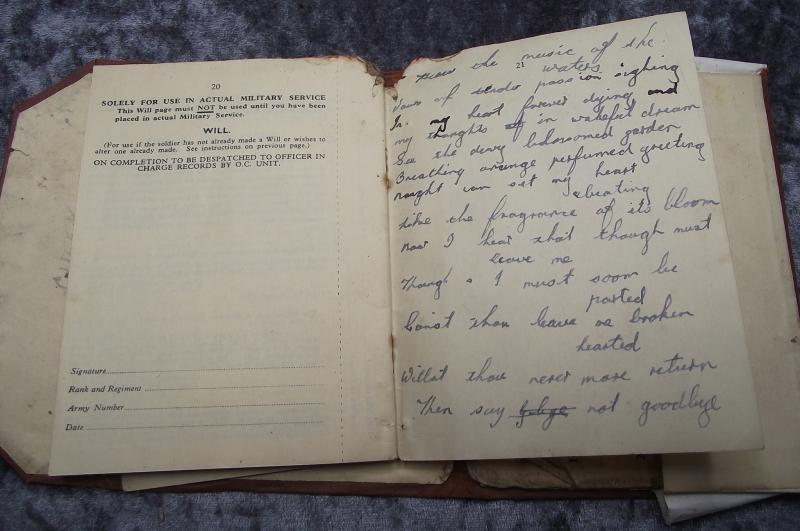 20
SOLELY FOR USE IN ACTUAL MILITARY SERVICE
This Will page must NOT be used until you have
placed in actual Military Service.
WILL.
(For use if the soldier has not already made a Will or wishes to
alter one already made. See instructions on previous page.)
ON COMPLETION TO BE DESPATCHED TO OFFICER IN
CHARGE RECORDS BY O.C. UNIT.
Signature
Rank and Regiment
Army Number
Date
21
the music of the
waters
of tender passion sighing
In my heart forever dying and
my thoughts in wakeful dream
See the dewy blossomed garden
Breathing orange perfumed greeting
naught can set my heart
abeating
like the fragrance of its bloom
now I hear that though must
leave me
Though I must soon be
parted
Canst thou leave me broken
hearted
Willst thou never more return
Then say not goodbye